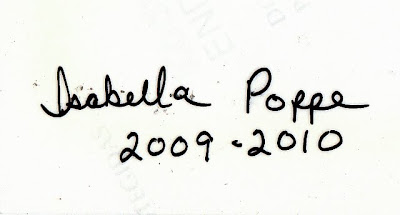 Isabella Poppe
2009-2010